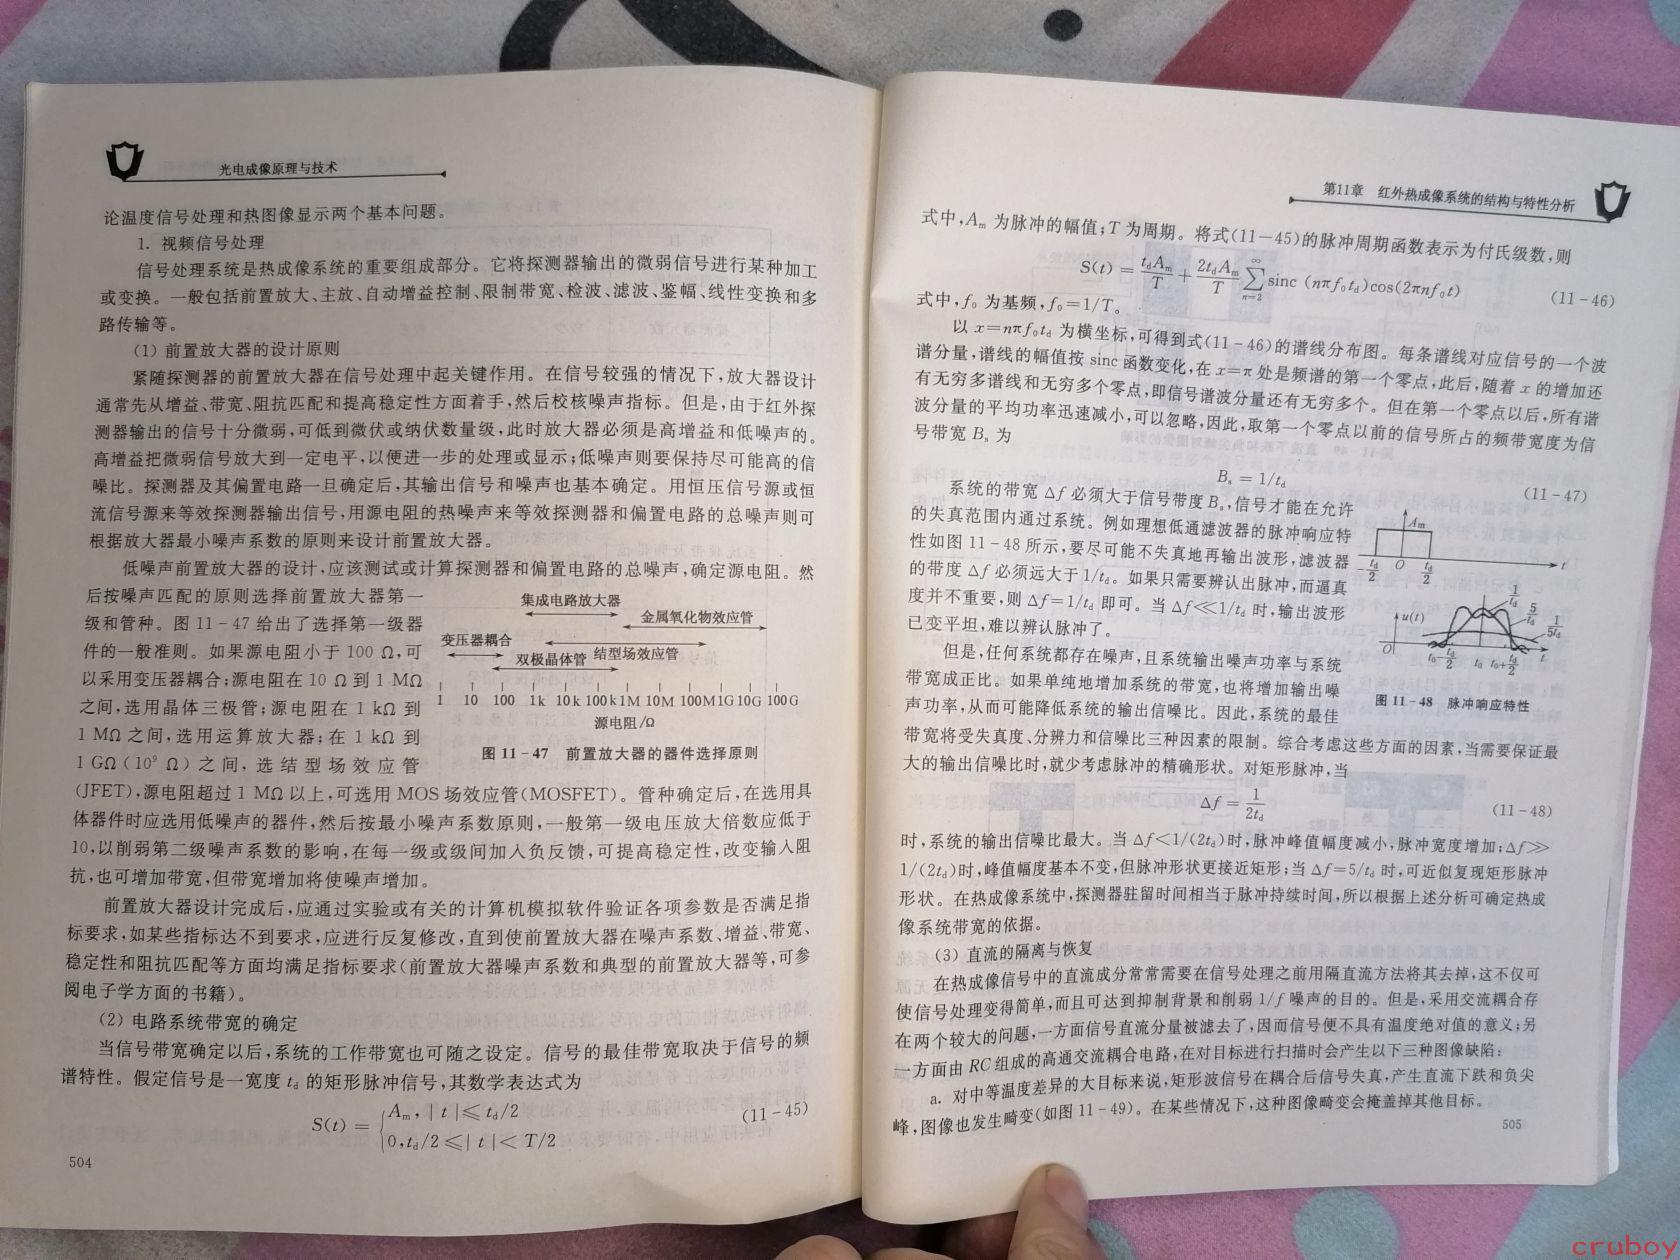 光电成像原理与技术
论温度信号处理和热图像显示两个基本问题。
1. 视频信号处理
信号处理系统是热成像系统的重要组成部分。它将探测器输出的微弱信号进行某种加工
或变换。一般包括前置放大、主放、自动增益控制、限制带宽、检波、滤波、鉴幅、线性变换和多
路传输等。
(1) 前置放大器的设计原则
紧随探测器的前置放大器在信号处理中起关键作用。在信号较强的情况下,放大器设计
通常先从增益、带宽、阻抗匹配和提高稳定性方面着手,然后校核噪声指标。但是,由于红外探
测器输出的信号十分微弱,可低到微伏或纳伏数量级,此时放大器必须是高增益和低噪声的。
高增益把微弱信号放大到一定电平,以便进一步的处理或显示;低噪声则要保持尽可能高的信
噪比。探测器及其偏置电路一旦确定后,其输出信号和噪声也基本确定。用恒压信号源或恒
流信号源来等效探测器输出信号,用源电阻的热噪声来等效探测器和偏置电路的总噪声则可
根据放大器最小噪声系数的原则来设计前置放大器。
低噪声前置放大器的设计,应该测试或计算探测器和偏置电路的总噪声,确定源电阻。然
后按噪声匹配的原则选择前置放大器第一
级和管种。图 11-47 给出了选择第一级器
件的一般准则。如果源电阻小于 100 Ω,可
以采用变压器耦合;源电阻在 10 Ω 到 1 MΩ
之间,选用晶体三极管;源电阻在 1 kΩ 到
1 MΩ 之间,选用运算放大器;在 1 kΩ 到
1 GΩ(10⁹ Ω)之间,选结型场效应管
集成电路放大器
金属氧化物效应管
变压器耦合
双极晶体管 结型场效应管
1 10 100 1k 10k 100k 1M 10M 100M 1G 10G 100G
源电阻/Ω
图 11-47 前置放大器的器件选择原则
(JFET),源电阻超过 1 MΩ 以上,可选用 MOS 场效应管(MOSFET)。管种确定后,在选用具
体器件时应选用低噪声的器件,然后按最小噪声系数原则,一般第一级电压放大倍数应低于
10,以削弱第二级噪声系数的影响,在每一级或级间加入负反馈,可提高稳定性,改变输入阻
抗,也可增加带宽,但带宽增加将使噪声增加。
前置放大器设计完成后,应通过实验或有关的计算机模拟软件验证各项参数是否满足指
标要求,如某些指标达不到要求,应进行反复修改,直到使前置放大器在噪声系数、增益、带宽、
稳定性和阻抗匹配等方面均满足指标要求(前置放大器噪声系数和典型的前置放大器等,可参
阅电子学方面的书籍)。
(2) 电路系统带宽的确定
当信号带宽确定以后,系统的工作带宽也可随之设定。信号的最佳带宽取决于信号的频
谱特性。假定信号是一宽度 t_d 的矩形脉冲信号,其数学表达式为
S(t) = { A_m, |t| ≤ t_d/2
0, t_d/2 ≤ |t| < T/2 (11-45)
504
第11章 红外热成像系统的结构与特性分析
式中,A_m 为脉冲的幅值;T 为周期。将式(11-45)的脉冲周期函数表示为付氏级数,则
S(t) = t_dA_m/T + 2t_dA_m/T ∑_{n=2}^{∞} sinc (nπf₀t_d)cos(2πnf₀t) (11-46)
式中,f₀ 为基频,f₀=1/T。
以 x=nπf₀t_d 为横坐标,可得到式(11-46)的谱线分布图。每条谱线对应信号的一个波
谱分量,谱线的幅值按 sinc 函数变化,在 x=π 处是频谱的第一个零点,此后,随着 x 的增加还
有无穷多谱线和无穷多个零点,即信号谱波分量还有无穷多个。但在第一个零点以后,所有谐
波分量的平均功率迅速减小,可以忽略,因此,取第一个零点以前的信号所占的频带宽度为信
号带宽 B_s 为
B_s = 1/t_d (11-47)
系统的带宽 Δf 必须大于信号带度 B_s,信号才能在允许
的失真范围内通过系统。例如理想低通滤波器的脉冲响应特
性如图 11-48 所示,要尽可能不失真地再输出波形,滤波器
的带度 Δf 必须远大于 1/t_d。如果只需要辨认出脉冲,而逼真
度并不重要,则 Δf=1/t_d 即可。当 Δf≪1/t_d 时,输出波形
已变平坦,难以辨认脉冲了。
但是,任何系统都存在噪声,且系统输出噪声功率与系统
带宽成正比。如果单纯地增加系统的带宽,也将增加输出噪
声功率,从而可能降低系统的输出信噪比。因此,系统的最佳
A_m
-t_d/2 O t_d/2 t
u(t) 1/t_d 5/t_d 1/5t_d
O t₀-t_d/2 t₀ t₀+t_d/2 t
图 11-48 脉冲响应特性
带宽将受失真度、分辨力和信噪比三种因素的限制。综合考虑这些方面的因素,当需要保证最
大的输出信噪比时,就少考虑脉冲的精确形状。对矩形脉冲,当
Δf = 1/2t_d (11-48)
时,系统的输出信噪比最大。当 Δf<1/(2t_d)时,脉冲峰值幅度减小,脉冲宽度增加;Δf≫
1/(2t_d)时,峰值幅度基本不变,但脉冲形状更接近矩形;当 Δf=5/t_d 时,可近似复现矩形脉冲
形状。在热成像系统中,探测器驻留时间相当于脉冲持续时间,所以根据上述分析可确定热成
像系统带宽的依据。
(3) 直流的隔离与恢复
在热成像信号中的直流成分常常需要在信号处理之前用隔直流方法将其去掉,这不仅可
使信号处理变得简单,而且可达到抑制背景和削弱 1/f 噪声的目的。但是,采用交流耦合存
在两个较大的问题,一方面信号直流分量被滤去了,因而信号便不具有温度绝对值的意义;另
一方面由 RC 组成的高通交流耦合电路,在对目标进行扫描时会产生以下三种图像缺陷:
a. 对中等温度差异的大目标来说,矩形波信号在耦合后信号失真,产生直流下跌和负尖
峰,图像也发生畸变(如图 11-49)。在某些情况下,这种图像畸变会掩盖掉其他目标。
505
cruboy